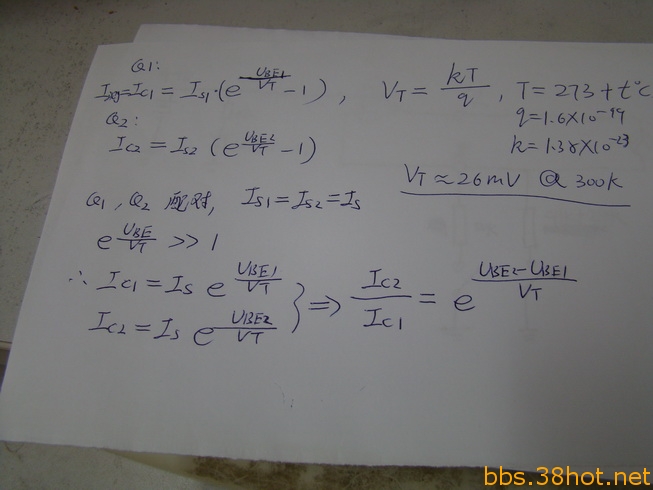 Q1:
IC1 = IS1·(e^(UBE1/VT) − 1), VT = kT/q, T = 273 + t°C
q = 1.6×10^-19
Q2:
k = 1.38×10^-23
IC2 = IS2 (e^(UBE2/VT) − 1)
VT ≈ 26mV @ 300k
Q1, Q2 配对, IS1 = IS2 = IS
e^(UBE/VT) >> 1
∴ IC1 = IS e^(UBE1/VT)
IC2 = IS e^(UBE2/VT) } ⇒ IC2/IC1 = e^((UBE2−UBE1)/VT)
bbs.38hot.net